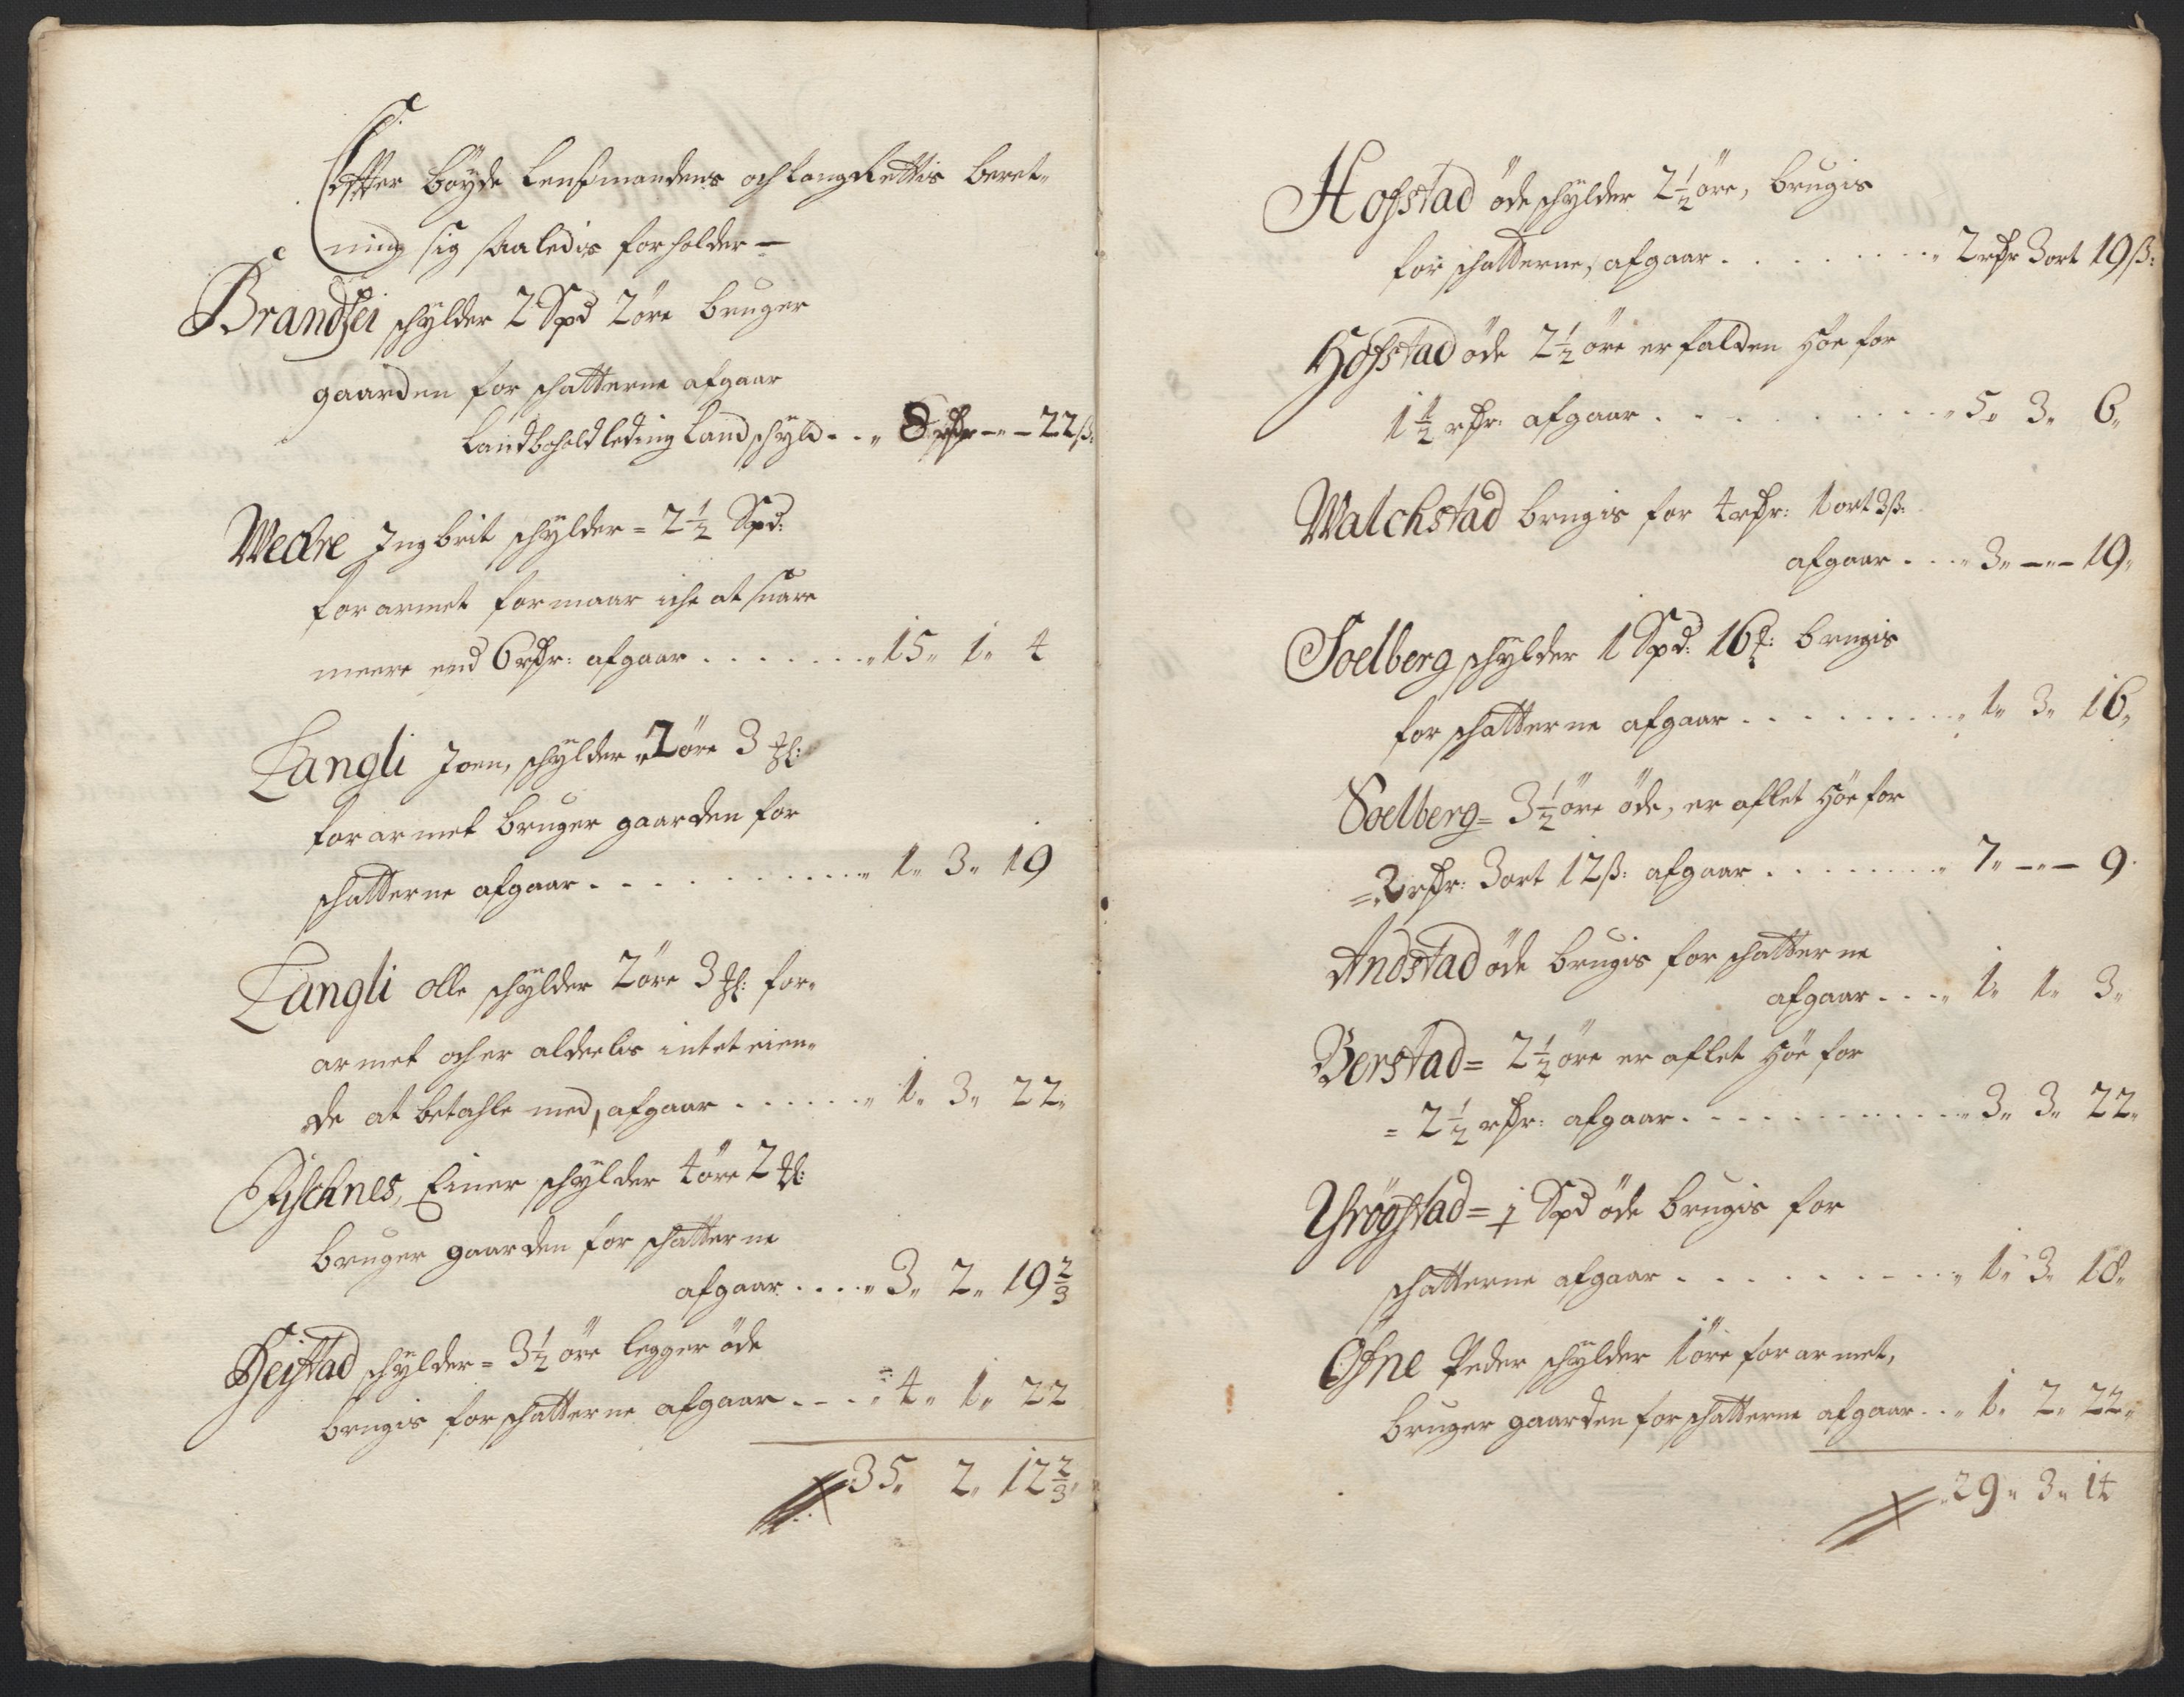 Effter böyde Lensmandens och LaugRettis beret-
ning sig saaledis forholder -
Brandsei schylder 2 Spd 2 öre bruger
gaarden for schatterne afgaar
Landbohold leding Landschyld . . „ 8 rdr - „ - 22 ß:
Wedre Ingbrit schylder = 2½ Spd:
for armet formaar iche at suare
meere end 6 rdr: afgaar . . . . . . . „ 15 „ 1 „ 4
Langli Joen, schylder „ 2 öre 3 #:
for armet bruger gaarden for
schatterne afgaar . . . . . . . . . . . „ 1 „ 3 „ 19
Langli Olle schylder 2 öre 3 #: for-
armet och er alderlis intet eien-
de at betahle med, afgaar . . . . . . „ 1 „ 3 „ 22 „
Fischnes, Einer schylder 4 öre 2 #:
bruger gaarden for schatterne
afgaar . . . . „ 3 „ 2 „ 19⅔
Heistad schylder = 3½ öre legger öde
brugis for schatterne afgaar . . . „ 4 „ 1 „ 22
35 „ 2 „ 12⅔ „
Hofstad öde schylder 2½ öre, brugis
for schatterne, afgaar . . . . . . . . „ 2 rdr 3 ort 19 ß:
Hofstad öde 2½ öre er falden Höe for
1½ rdr: afgaar . . . . . . . . . „ 5 „ 3 „ 6 „
Walchstad brugis for 4 rdr: 1 ort 3 ß:
afgaar . . . „ 3 „ - „ - 19 „
Soelberg schylder 1 Spd: 16 #: brugis
for schatterne afgaar . . . . . . . . . „ 1 „ 3 „ 16 „
Soelberg = 3½ öre öde, er aflet Höe for
= 2 rdr: 3 ort 12 ß: afgaar . . . . . . . „ 7 „ - „ - 9 .
Andstad öde brugis for schatterne
afgaar . . . „ 1 „ 1 „ 3 „
Berstad = 2½ öre er aflet Höe for
= 2½ rdr: afgaar . . . . . . . . . . . „ 3 „ 3 „ 22 „
= 1 Spd öde brugis for
schatterne afgaar . . . . . . . . . . „ 1 „ 3 „ 18 „
Ofne Peder schylder 1 öre for armet,
bruger gaarden for schatterne afgaar . . „ 1 „ 2 „ 22 „
„ 29 „ 3 „ 14